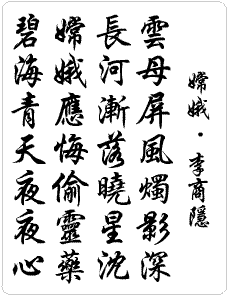 嫦娥·李商隱
雲母屏風燭影深
長河漸落曉星沈
嫦娥應悔偷靈藥
碧海青天夜夜心